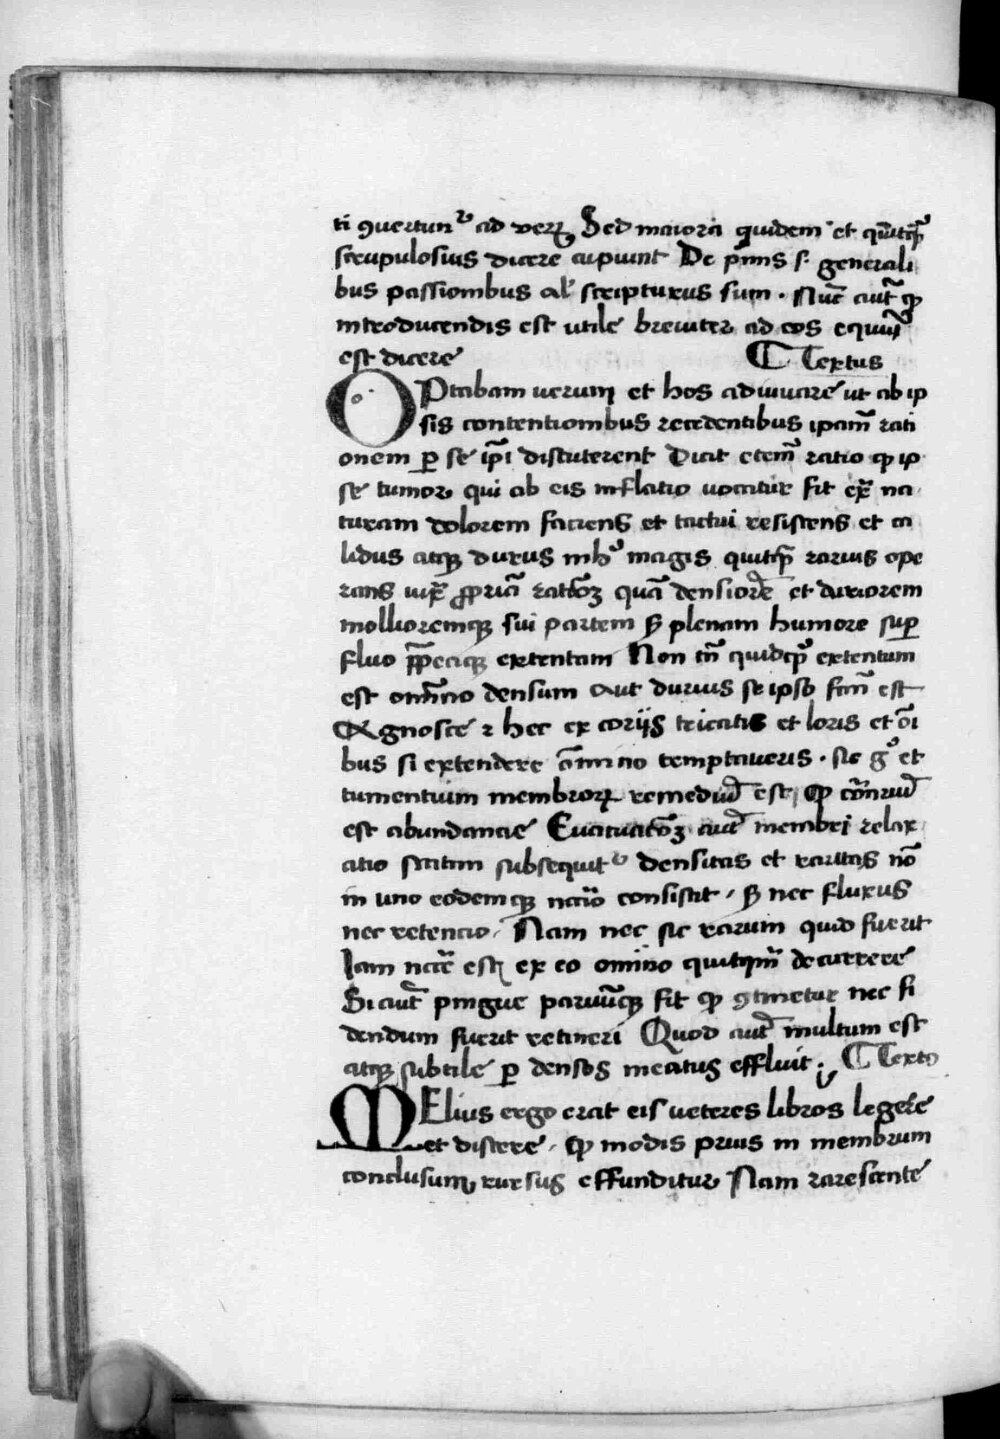 ti ꝯuertunᷣ ad verꝝ Sed maiora quidem et quātūcꝙ
scrupulosius dicere cupiunt De p̄mis s. generali
bus passionibus al' scripturus sum . Nūc aut̄ ꝙ
introducendis est utile breuiter ad eos equū
est dicere ¶ Textus
OPtabam uerum et hos adiuuare ut ab ip
sis contentionibus recedentibus ipam̄ rati
onem ꝑ se ip̄i discuterent Dicit etem̄ ratio ꝙ ip
se tumor qui ab eis inflatio uocatur fit ex̄ na
turam dolorem faciens et tactui resistens et ca
lidus atqꝫ durus magis rarius ope
rans iux̄ ꝓpriā ratiōꝫ quā densiorē et duriorem
mollioremqꝫ sui partem sꝫ plenam humore suꝑ
fluo extentam Non tn̄ extentum
est om̄ino densum aut durius se ipso fcm̄ est
Agnosce ⁊ hec ex coriijs tricatis et loris et oī
bus si extendere ōmino temptaueris . sic gͦ et
tumentium membroꝝ remediū est ꝙ cōtrariū
est abundancie Euacuatiōꝫ aut̄ membri relax
atio statim subsequitᷣ densitas et raritas nō
in uno eodemqꝫ consistit / sꝫ nec fluxus
nec retencio / Nam nec sic rarum quid fuerit
Iam est ex eo omino decurrere
Si aut̄ pingue paruūqꝫ sit ꝙ ꝯtinetur nec fi
dendum fuerit retineri Quod aut̄ multum est
atqꝫ subtile ꝑ densos meatus effluit . ¶ Textꝰ
MElius ergo erat eis ueteres libros legere
et discere / ꝙ modis prius in membrum
conclusum rursus effunditur Nam rarescente